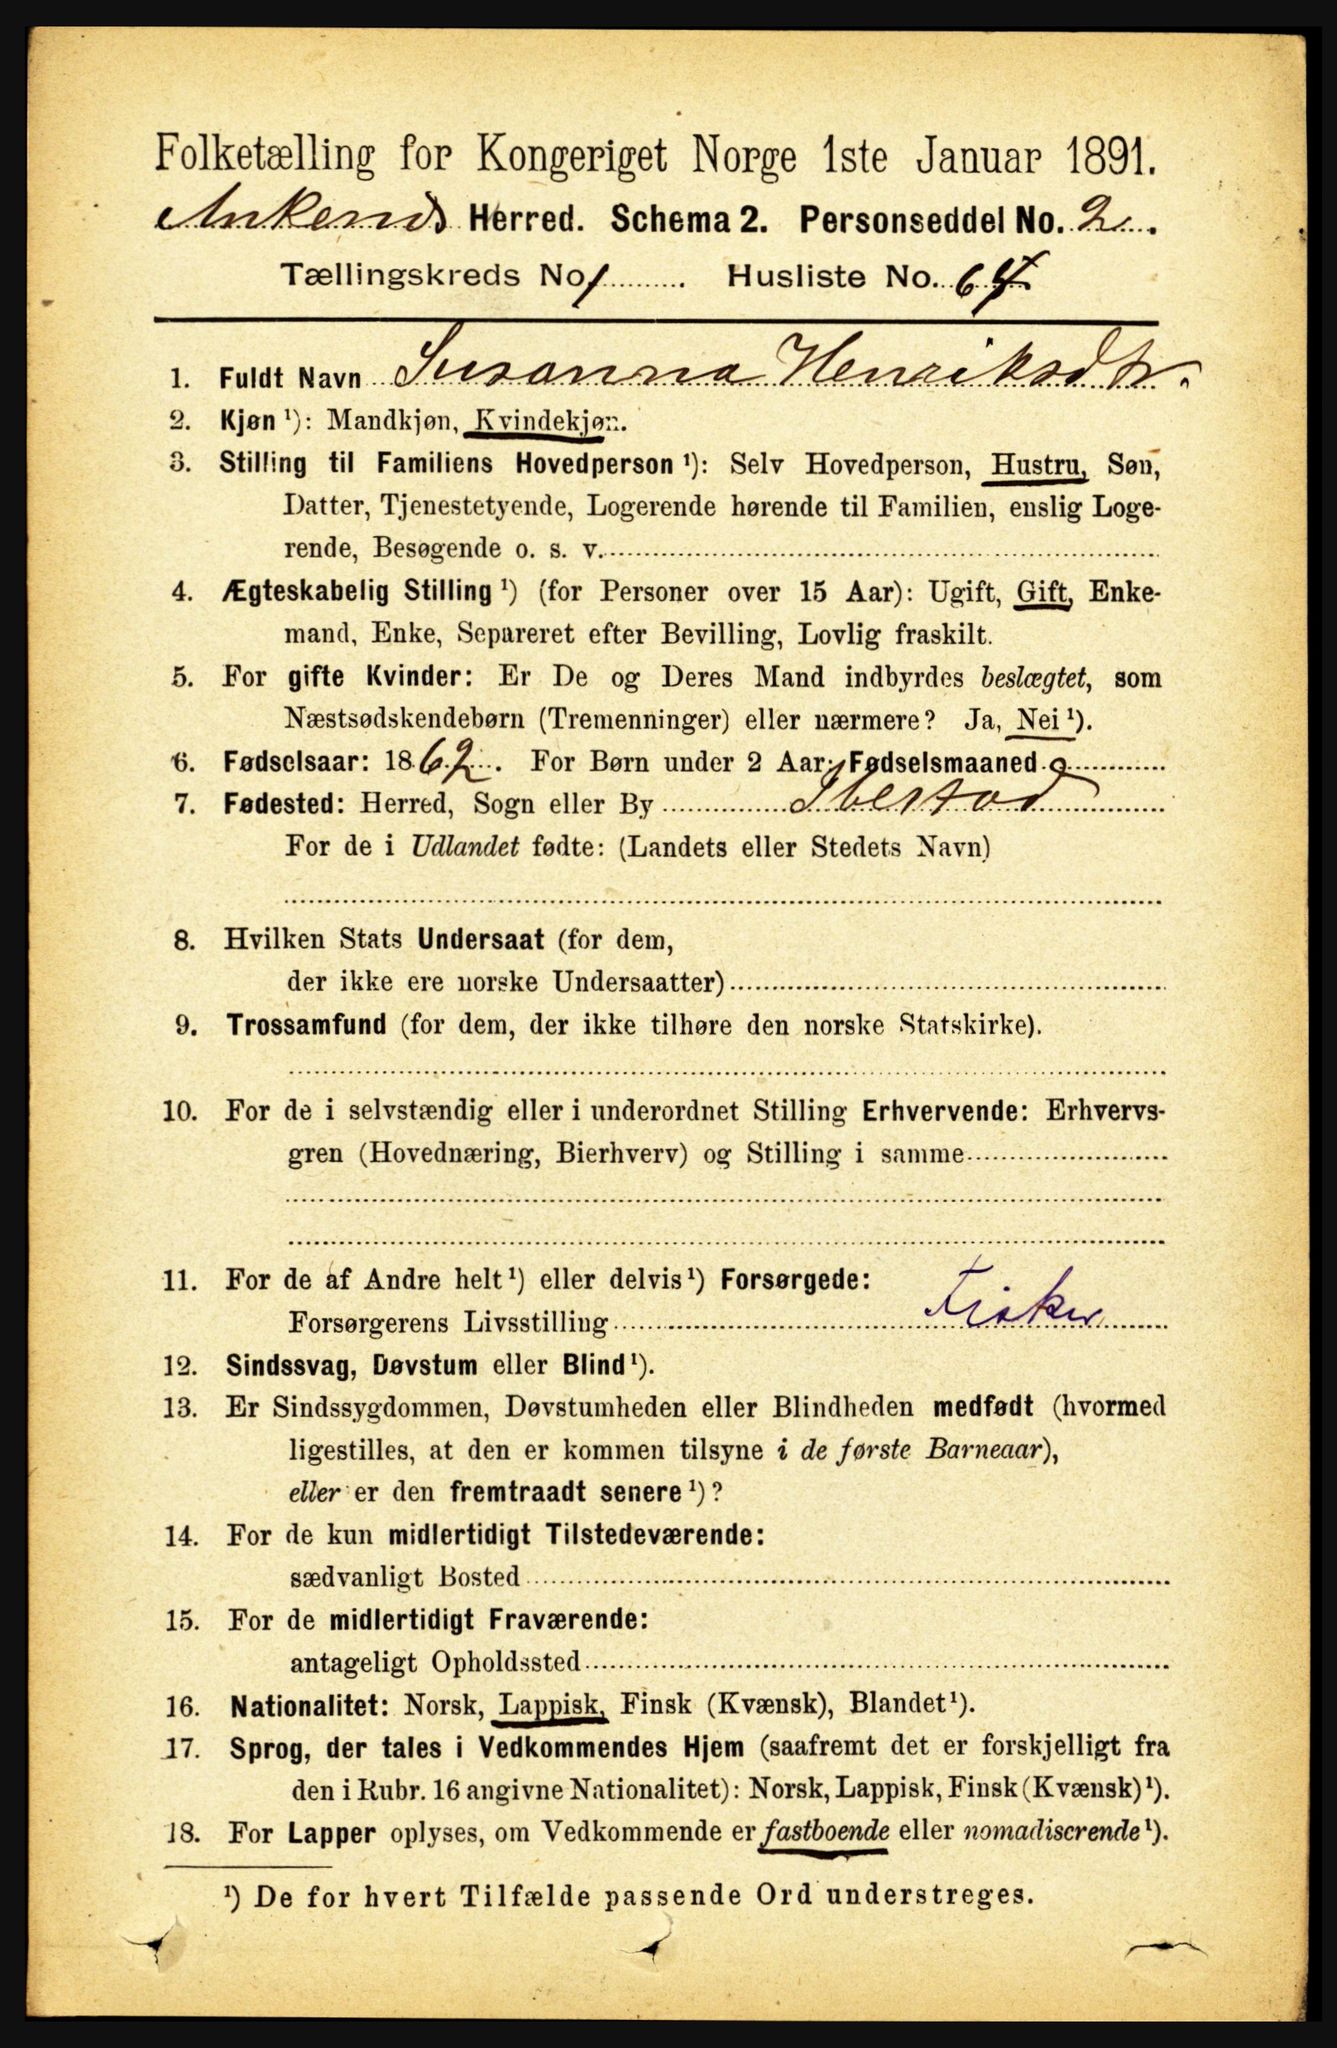 Folketælling for Kongeriget Norge 1ste Januar 1891.
Ankenes Herred. Schema 2. Personseddel No. 2.
Tællingskreds No. 1. Husliste No. 64
1. Fuldt Navn Susanna Henriksdtr.
2. Kjøn ¹): Mandkjøn, Kvindekjøn.
3. Stilling til Familiens Hovedperson ¹): Selv Hovedperson, Hustru, Søn,
Datter, Tjenestetyende, Logerende hørende til Familien, enslig Loge-
rende, Besøgende o. s. v.
4. Ægteskabelig Stilling ¹) (for Personer over 15 Aar): Ugift, Gift, Enke-
mand, Enke, Separeret efter Bevilling, Lovlig fraskilt.
5. For gifte Kvinder: Er De og Deres Mand indbyrdes beslægtet, som
Næstsødskendebørn (Tremenninger) eller nærmere? Ja, Nei ¹).
6. Fødselsaar: 1862. For Børn under 2 Aar: Fødselsmaaned
7. Fødested: Herred, Sogn eller By Ibestad
For de i Udlandet fødte: (Landets eller Stedets Navn)
8. Hvilken Stats Undersaat (for dem,
der ikke ere norske Undersaatter)
9. Trossamfund (for dem, der ikke tilhøre den norske Statskirke).
10. For de i selvstændig eller i underordnet Stilling Erhvervende: Erhvervs-
gren (Hovednæring, Bierhverv) og Stilling i samme
11. For de af Andre helt ¹) eller delvis ¹) Forsørgede:
Forsørgerens Livsstilling Fisker
12. Sindssvag, Døvstum eller Blind ¹).
13. Er Sindssygdommen, Døvstumheden eller Blindheden medfødt (hvormed
ligestilles, at den er kommen tilsyne i de første Barneaar),
eller er den fremtraadt senere ¹)?
14. For de kun midlertidigt Tilstedeværende:
sædvanligt Bosted
15. For de midlertidigt Fraværende:
antageligt Opholdssted
16. Nationalitet: Norsk, Lappisk, Finsk (Kvænsk), Blandet ¹).
17. Sprog, der tales i Vedkommendes Hjem (saafremt det er forskjelligt fra
den i Rubr. 16 angivne Nationalitet): Norsk, Lappisk, Finsk (Kvænsk) ¹).
18. For Lapper oplyses, om Vedkommende er fastboende eller nomadiserende ¹).
¹) De for hvert Tilfælde passende Ord understreges.